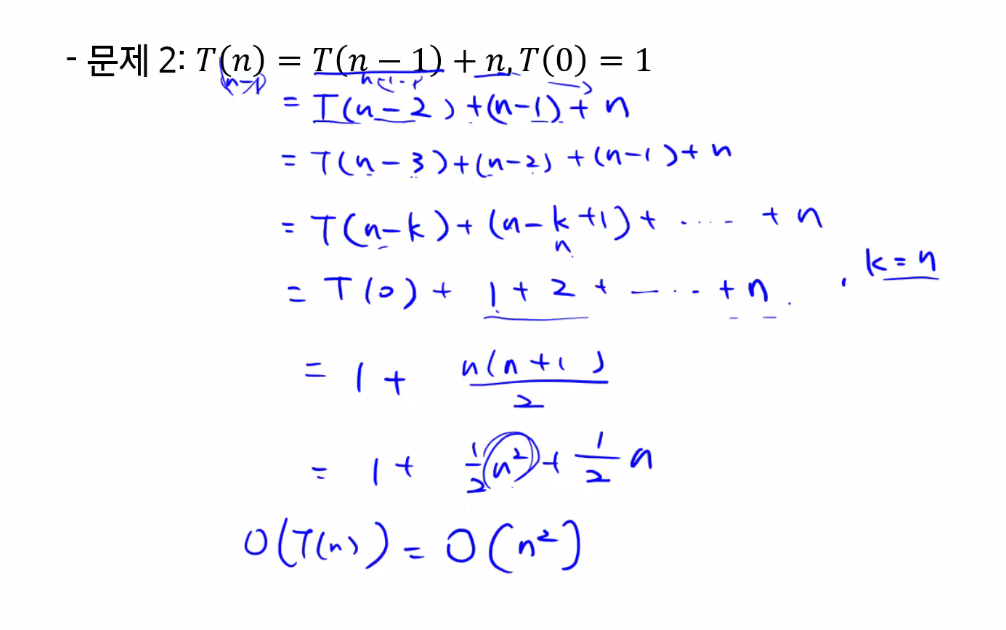 - 문제 2: T(n) = T(n − 1) + n, T(0) = 1
(n-1)
= T(n-2) + (n-1) + n
= T(n-3) + (n-2) + (n-1) + n
= T(n-k) + (n-k+1) + ..... + n
n
= T(0) + 1 + 2 + ..... + n . , k = n
= 1 + n(n+1)/2
= 1 + 1/2 n² + 1/2 n
O(T(n)) = O(n²)